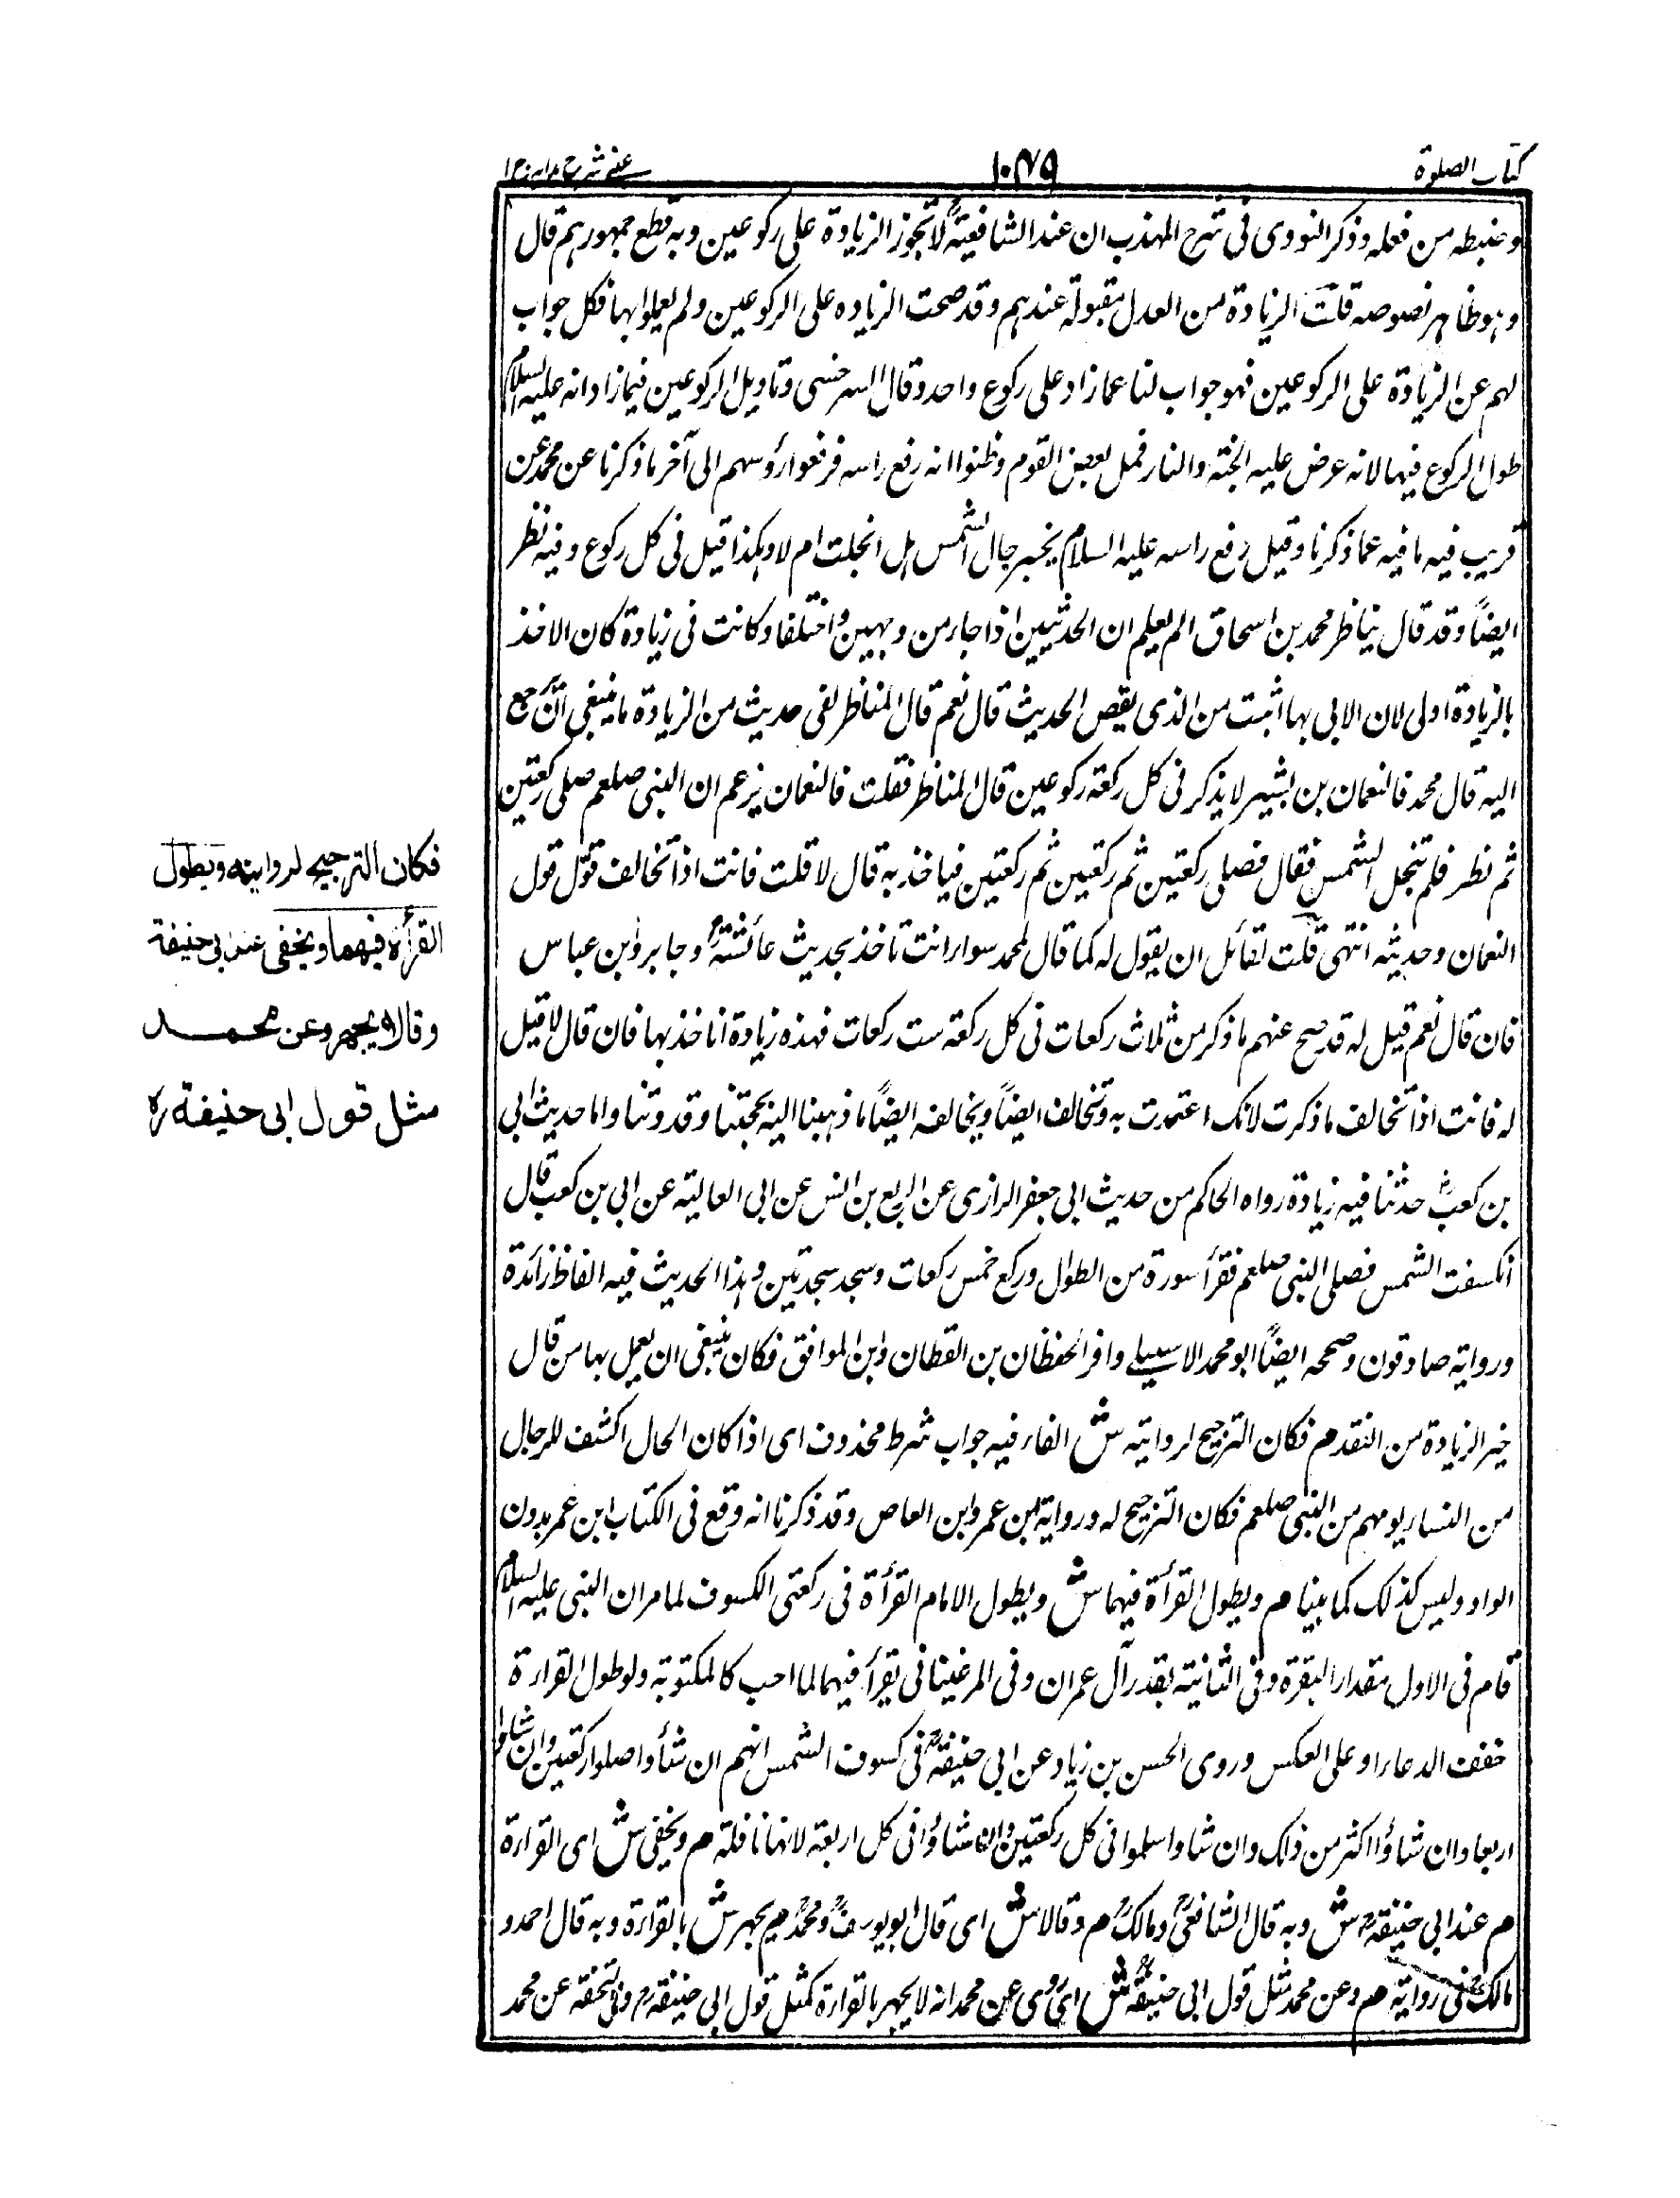 كتاب الصلوة
١٠٧٩
عيني شرح هدايه ج ١
وضبطه من فعله وذكر النووى فى شرح المهذب ان عند الشافعية لا تجوز الزيادة على ركوعين وبه قطع جمهورهم قال
وهو ظاهر نصوصه قلت الزيادة من العدل مقبولة عندهم وقد صحت الزياده على الركوعين ولم يعملوا بها فكل جواب
لهم عن الزيادة على الركوعين فهو جواب لنا عما زاد على ركوع واحد وقال السرخسى وتاويل الركوعين فيما زاد انه عليه السلام
طول الركوع فيها لانه عرض عليه الجنة والنار فمل بعض القوم وظنوا انه رفع راسه فرفعوا رؤسهم الى آخر ما ذكرنا عن محمد عن
قريب فيه ما فيه عما ذكرنا وقيل رفع راسه عليه السلام يخبر حال الشمس هل انجلت ام لا وهكذا قيل فى كل ركوع وفيه نظر
ايضاً وقد قال يناظر محمد بن اسحاق الم يعلم ان الحديثين اذا جاء من وجهين واختلفا وكانت فى زيادة كان الاخذ
بالزيادة اولى لان الاتى بها اثبت من الذى نقص الحديث قال نعم قال المناظر لفى حديث من الزيادة ما ينبغى ان ترجع
اليه قال محمد فالنعمان بن بشير لا يذكر فى كل ركعة ركوعين قال المناظر فقلت فالنعمان يزعم ان النبى صلعم صلى ركعتين
ثم نظر فلم تنجل الشمس فقال فصلى ركعتين ثم ركعتين ثم ركعتين فياخذ به قال لا قلت فانت اذاً تخالف قول
النعمان وحديثه انتهى قلت لقائل ان يقول له كما قال لمحمد سوار انت تاخذ بحديث عائشة وجابر وابن عباس
فان قال نعم قيل له قد صح عنهم ما ذكر من ثلاث ركعات فى كل ركعة ست ركعات فهذه زيادة انا خذ بها فان قال لا قيل
له فانت اذاً تخالف ما ذكرت لانك اعتمدت به وتخالف ايضاً ويخالفه ايضاً ما ذهبنا اليه بحجتنا وقدوتنا واما حديث ابى
بن كعب حدثنا فيه زيادة رواه الحاكم من حديث ابى جعفر الرازى عن الربيع بن انس عن ابى العالية عن ابى بن كعب قال
انكسفت الشمس فصلى النبى صلعم فقرأ سورة من الطوال وركع خمس ركعات وسجد سجدتين وهذا الحديث فيه الفاظ زائدة
ورواية صادقون وصححه ايضاً ابو محمد الاسبيلى بن القطان وابن الموافق فكان ينبغى ان يعمل بها من قال
خير الزيادة من النقد م فكان الترجيح لروايته ش الفاء فيه جواب شرط محذوف اى اذا كان الحال اكشف للرجال
من النساء يومهم من النبى صلعم فكان الترجيح له ورواية ابن عمرو ابن العاص وقد ذكرنا انه وقع فى الكتاب ابن عمر بدون
الواو وليس كذلك كما بينا م ويطول القرأة فيهما ش ويطول الامام القرأة فى ركعتى الكسوف لما مر ان النبى عليه السلام
قام فى الاول مقدار البقرة وفى الثانية بقدر آل عمران وفى المرغينانى يقرأ فيهما لما احب كالمكتوبة ولو طول القراءة
خففت الدعاء او على العكس وروى الحسن بن زياد عن ابى حنيفة فى كسوف الشمس انهم ان شأوا صلوا ركعتين وان شاؤا
اربعا وان شاؤا اكثر من ذلك وان شاوا سلموا فى كل ركعتين وان شاؤا فى كل اربعة لانها نافلة م ويخفى ش اى القراءة
م عند ابى حنيفة ش وبه قال الشافعى ومالك م وقالا ش اى قال ابو يوسف ومحمد م يجهر ش بالقراءة وبه قال احمد و
مالك فى رواية م وعن محمد مثل قول ابى حنيفة ش اى روى عن محمد انه لا يجهر بالقراءة كمثل قول ابى حنيفة وفى التحفة عن محمد
فكان الترجيح لروايته ويطول
القرأة فيهما ويخفى عند ابى حنيفة
وقالا يجهر وعن محمد
مثل قول ابى حنيفة ره